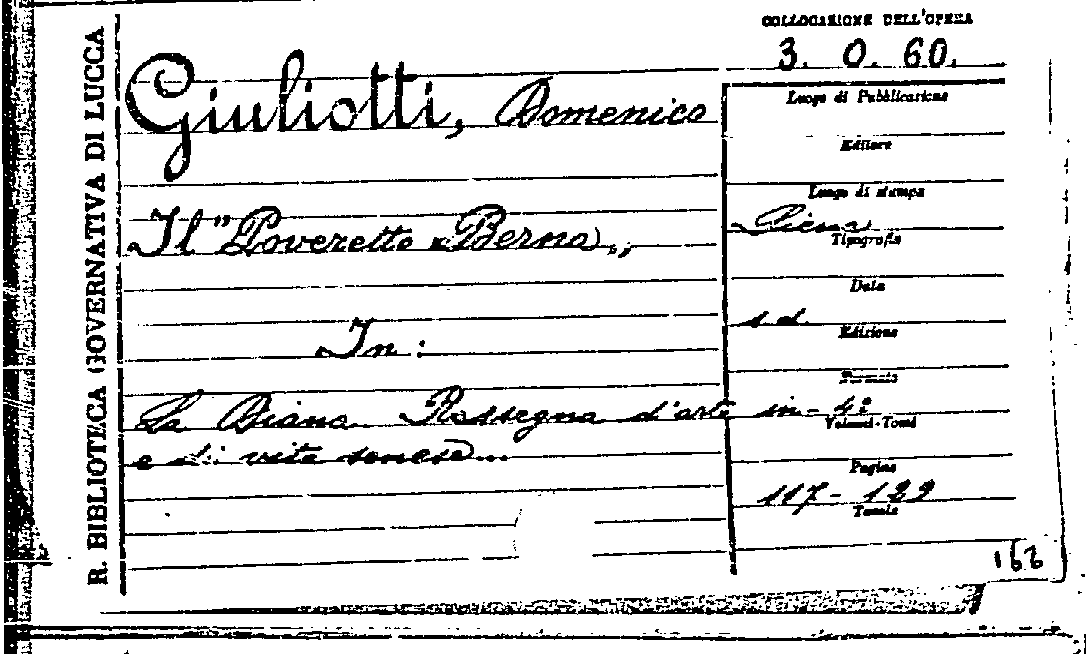 R. BIBLIOTECA GOVERNATIVA DI LUCCA
COLLOCAZIONE DELL'OPERA
3. O. 60.
Giuliotti, Domenico
Il "Poveretto Berna,,
In:
La Diana. Rassegna d'arte
e di vita senese...
Luogo di Pubblicazione
Editore
Luogo di stampa
Siena
Tipografia
Data
s. d.
Edizione
Formato
in-4°
Volumi-Tomi
Pagine
117-122
Tavole
162